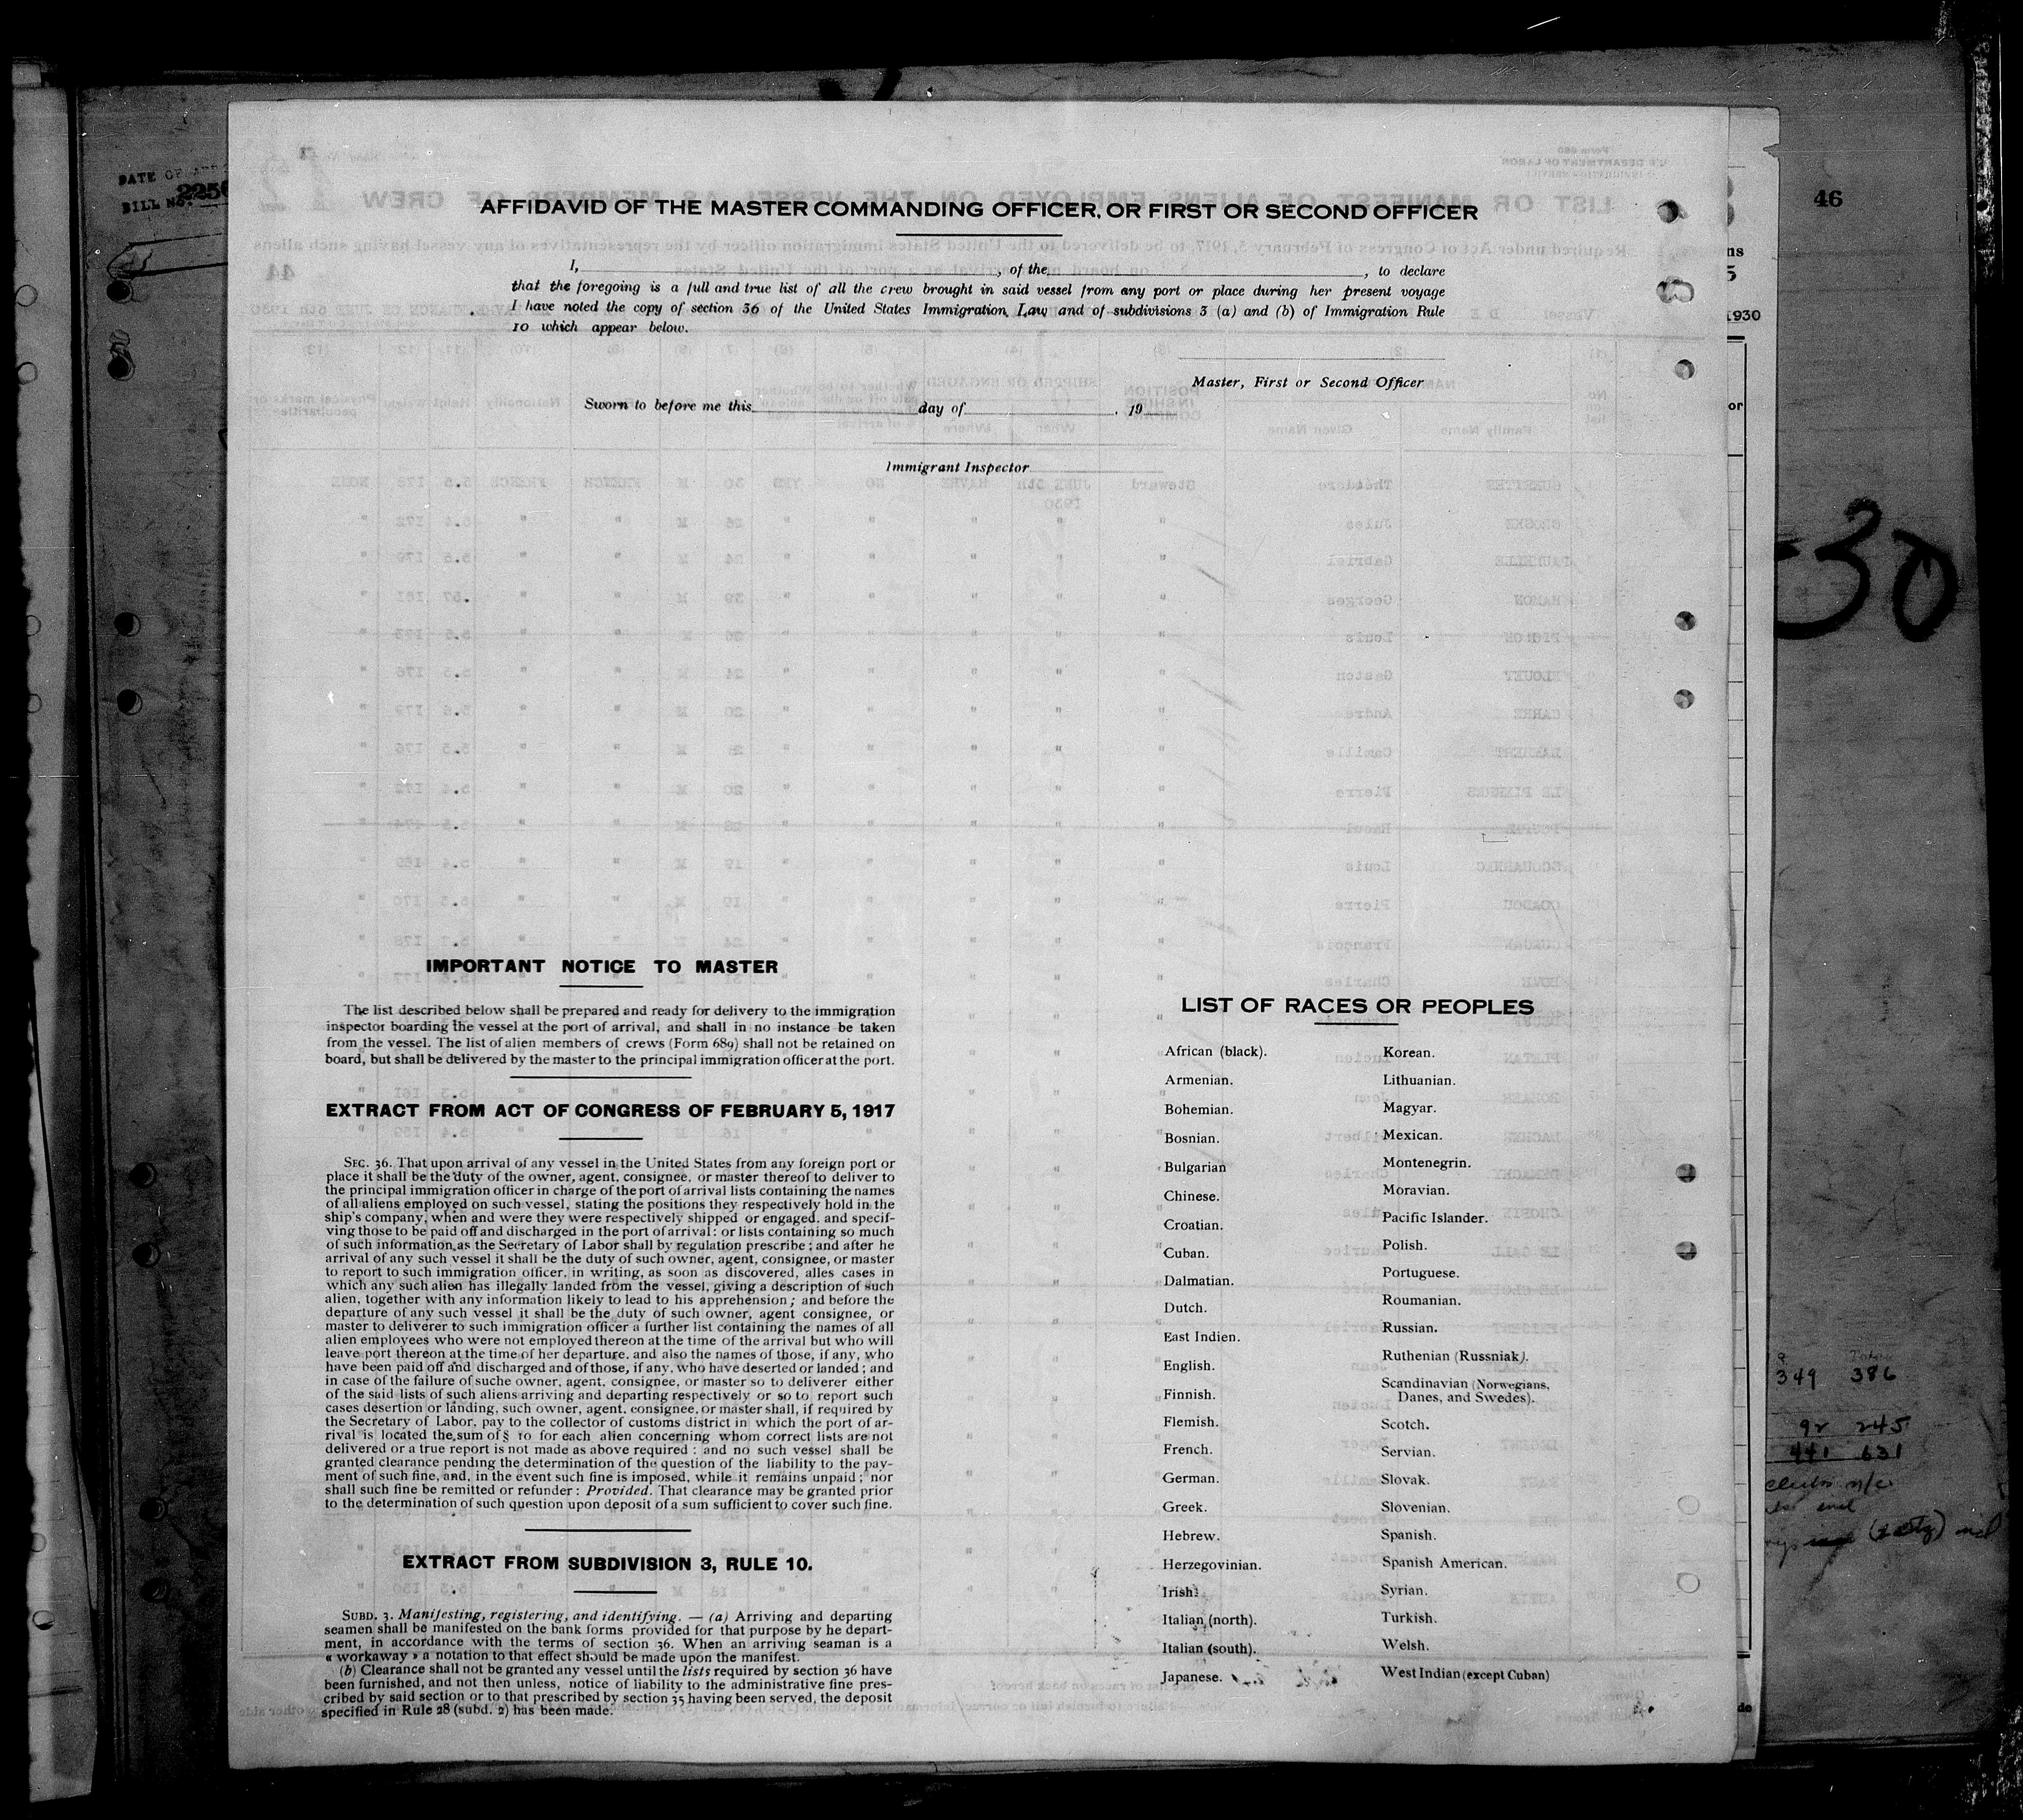 46
AFFIDAVID OF THE MASTER COMMANDING OFFICER, OR FIRST OR SECOND OFFICER
I, , of the , to declare
that the foregoing is a full and true list of all the crew brought in said vessel from any port or place during her present voyage
I have noted the copy of section 36 of the United States Immigration Law and of subdivisions 3 (a) and (b) of Immigration Rule
10 which appear below.
Master, First or Second Officer
Sworn to before me this day of , 19
Immigrant Inspector
IMPORTANT NOTICE TO MASTER
The list described below shall be prepared and ready for delivery to the immigration
inspector boarding the vessel at the port of arrival, and shall in no instance be taken
from the vessel. The list of alien members of crews (Form 689) shall not be retained on
board, but shall be delivered by the master to the principal immigration officer at the port.
EXTRACT FROM ACT OF CONGRESS OF FEBRUARY 5, 1917
SEC. 36. That upon arrival of any vessel in the United States from any foreign port or
place it shall be the duty of the owner, agent, consignee, or master thereof to deliver to
the principal immigration officer in charge of the port of arrival lists containing the names
of all aliens employed on such vessel, stating the positions they respectively hold in the
ship's company, when and were they were respectively shipped or engaged, and specif-
ving those to be paid off and discharged in the port of arrival: or lists containing so much
of such information as the Secretary of Labor shall by regulation prescribe; and after he
arrival of any such vessel it shall be the duty of such owner, agent, consignee, or master
to report to such immigration officer, in writing, as soon as discovered, alles cases in
which any such alien has illegally landed from the vessel, giving a description of such
alien, together with any information likely to lead to his apprehension; and before the
departure of any such vessel it shall be the duty of such owner, agent consignee, or
master to deliverer to such immigration officer a further list containing the names of all
alien employees who were not employed thereon at the time of the arrival but who will
leave port thereon at the time of her departure, and also the names of those, if any, who
have been paid off and discharged and of those, if any, who have deserted or landed; and
in case of the failure of suche owner, agent, consignee, or master so to deliverer either
of the said lists of such aliens arriving and departing respectively or so to report such
cases desertion or landing, such owner, agent, consignee, or master shall, if required by
the Secretary of Labor, pay to the collector of customs district in which the port of ar-
rival is located the sum of § 10 for each alien concerning whom correct lists are not
delivered or a true report is not made as above required: and no such vessel shall be
granted clearance pending the determination of the question of the liability to the pay-
ment of such fine, and, in the event such fine is imposed, while it remains unpaid; nor
shall such fine be remitted or refunder: Provided. That clearance may be granted prior
to the determination of such question upon deposit of a sum sufficient to cover such fine.
EXTRACT FROM SUBDIVISION 3, RULE 10.
SUBD. 3. Manifesting, registering, and identifying. — (a) Arriving and departing
seamen shall be manifested on the bank forms provided for that purpose by he depart-
ment, in accordance with the terms of section 36. When an arriving seaman is a
« workaway » a notation to that effect should be made upon the manifest.
(b) Clearance shall not be granted any vessel until the lists required by section 36 have
been furnished, and not then unless, notice of liability to the administrative fine pres-
cribed by said section or to that prescribed by section 35 having been served, the deposit
specified in Rule 28 (subd. 2) has been made.
LIST OF RACES OR PEOPLES
African (black).
Armenian.
Bohemian.
Bosnian.
Bulgarian
Chinese.
Croatian.
Cuban.
Dalmatian.
Dutch.
East Indien.
English.
Finnish.
Flemish.
French.
German.
Greek.
Hebrew.
Herzegovinian.
Irish.
Italian (north).
Italian (south).
Japanese.
Korean.
Lithuanian.
Magyar.
Mexican.
Montenegrin.
Moravian.
Pacific Islander.
Polish.
Portuguese.
Roumanian.
Russian.
Ruthenian (Russniak).
Scandinavian (Norwegians,
Danes, and Swedes).
Scotch.
Servian.
Slovak.
Slovenian.
Spanish.
Spanish American.
Syrian.
Turkish.
Welsh.
West Indian (except Cuban)
1930
30
349 386
92 245
441 631